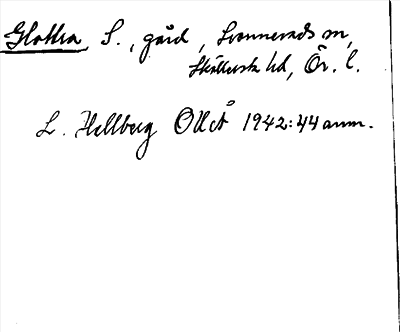 Glottra, S., gård, Svennevads sn,
Sköllersta hd, Ör. l.
L. Hellberg OUÅ 1942:44 anm.